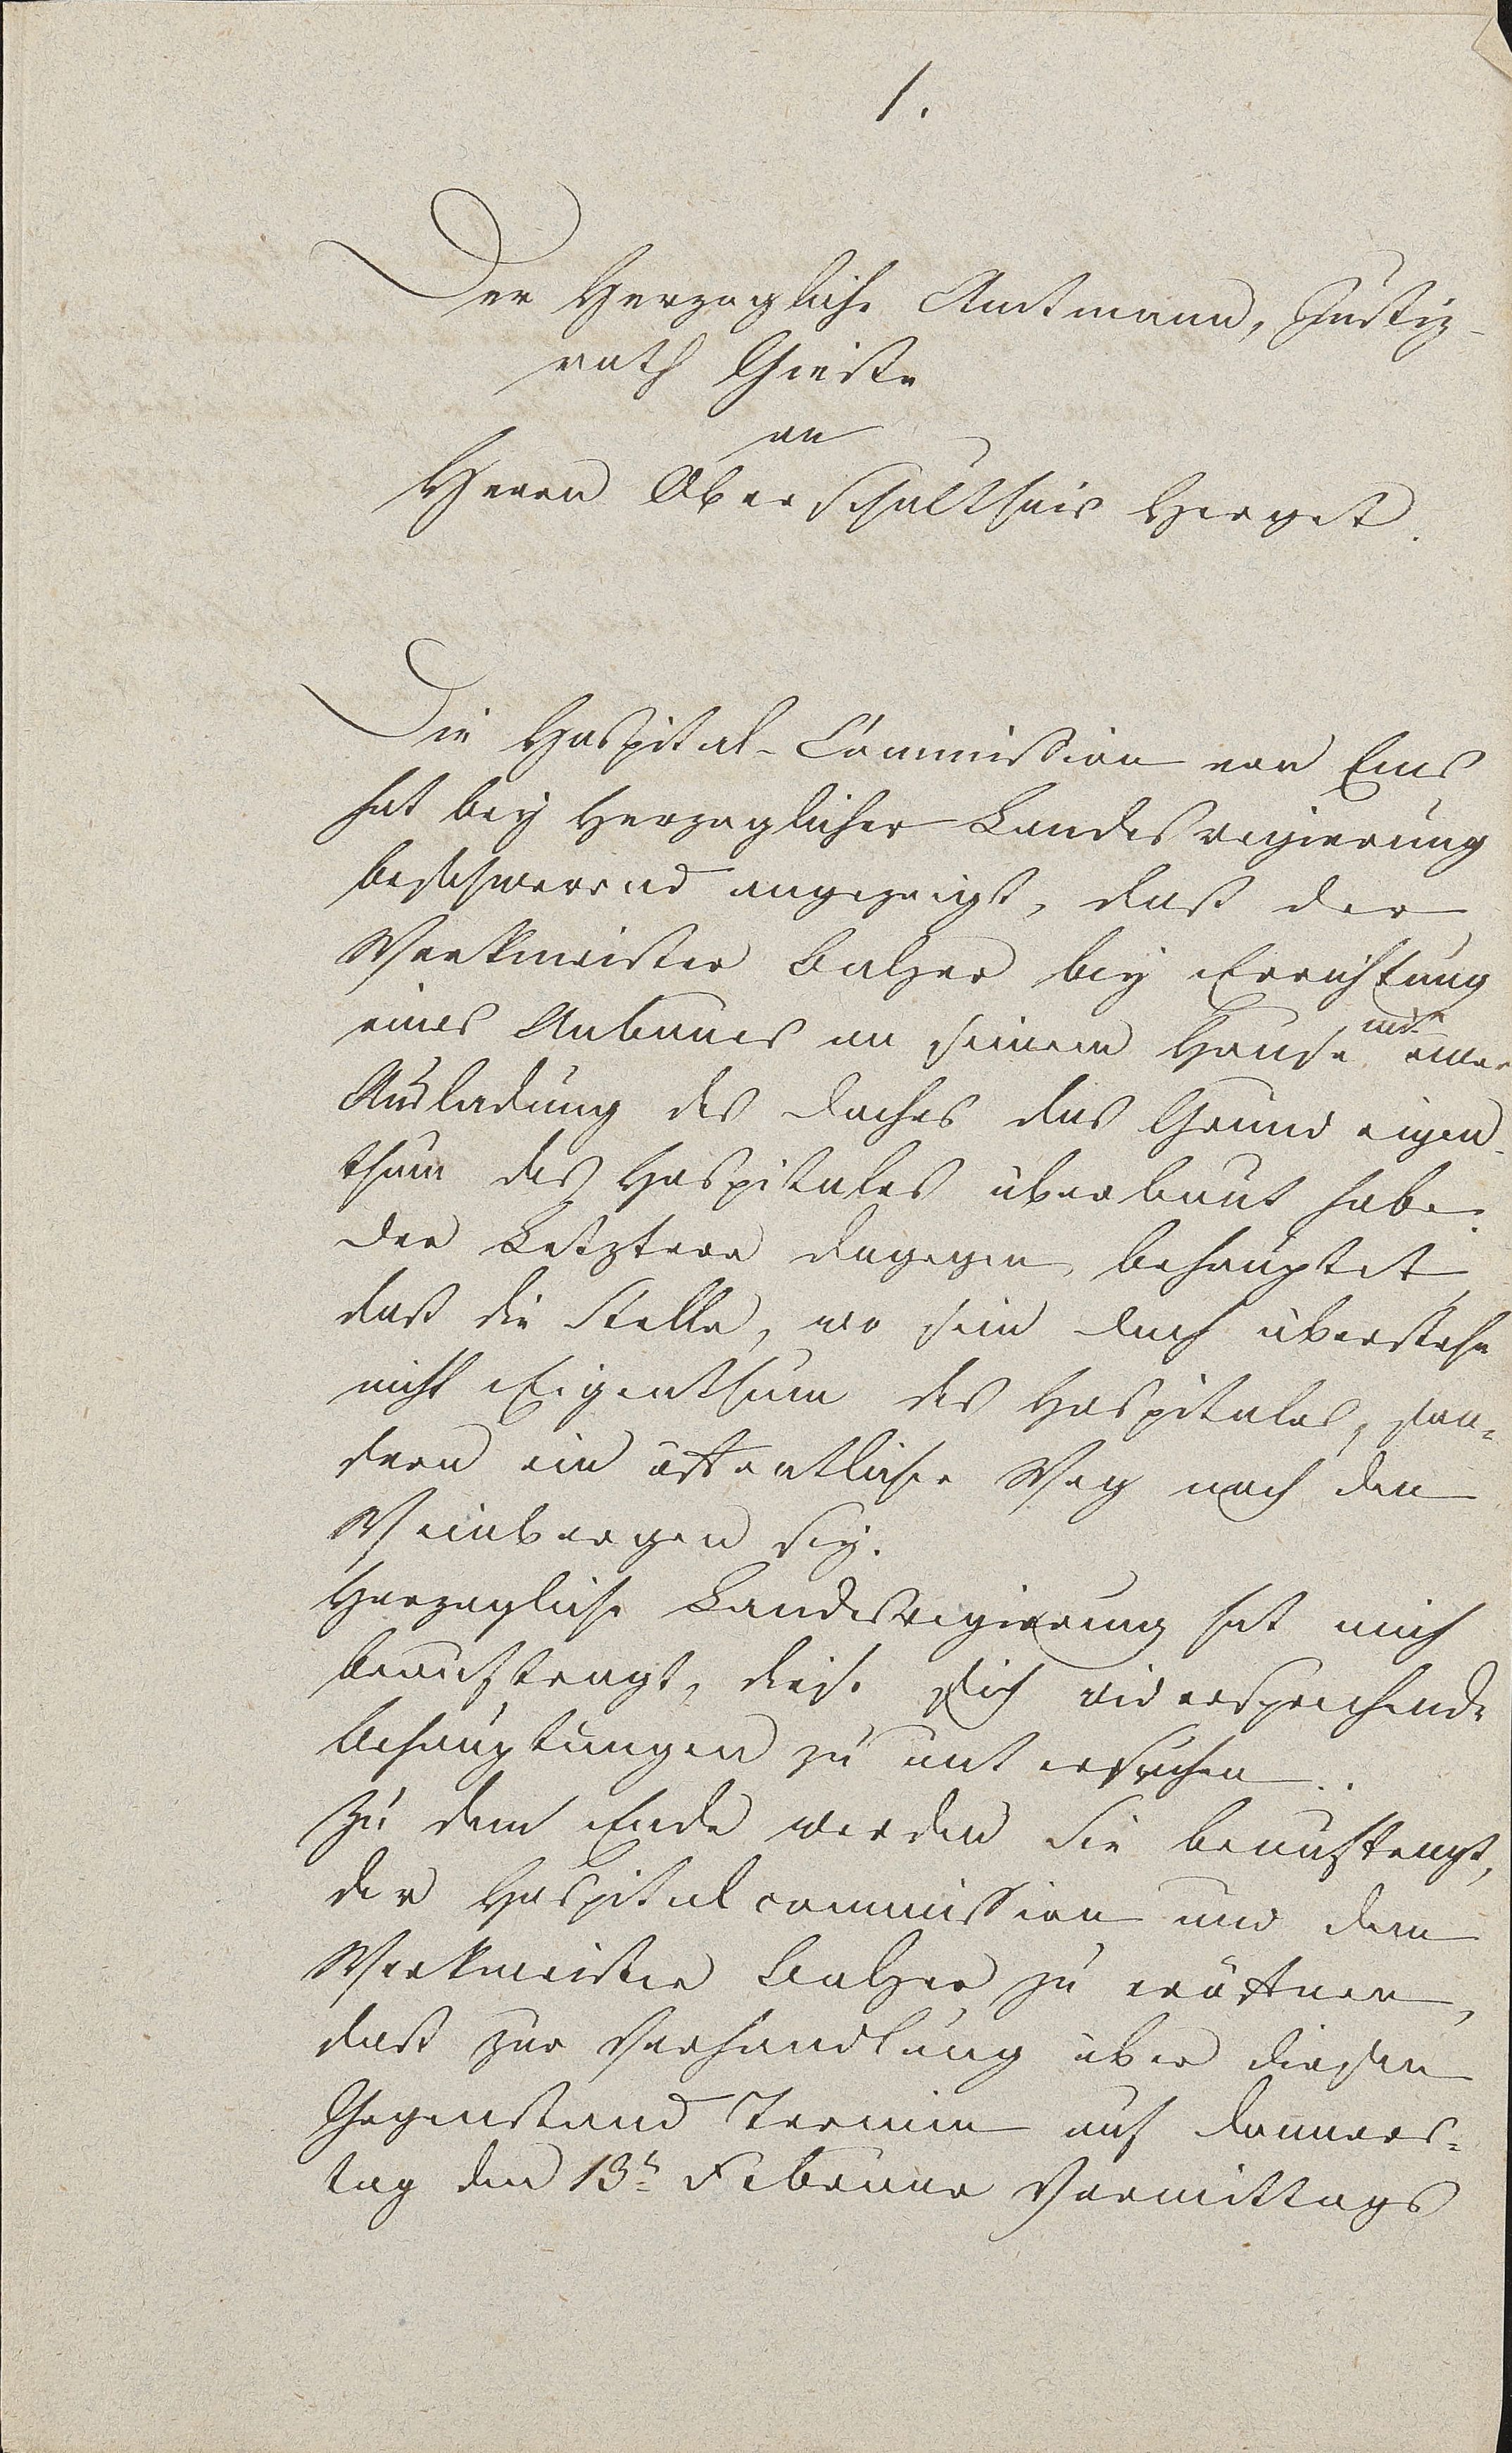 1.
Der Herzogliche Amtmann, Justiz-
rath Gieße
an
Herrn Oberschultheis Herget.
Die Hospital-Commission von Ems
hat bey Herzoglicher Landesregierung
beschwerend angezeigt, daß der
Werkmeister Balzer bey Errichtung
eines Anbaues an seinem Hause mit einer
Ausladung des Daches das Grundeigen-
thum des Hospitales überbaut habe.
Der Letztere dagegen behauptet,
daß die Stelle, wo sein Dach überstehe
nicht Eigenthum des Hospitales, son-
dern ein öffentlicher Weg nach den
Weinbergen sey.
Herzogliche Landesregierung hat mich
beauftragt, diese sich widersprechende
Behauptungen zu untersuchen.
Zu dem Ende werden Sie beauftragt,
der Hospitalcommission und dem
Werkmeister Balzer zu eröffnen,
daß zur Verhandlung über diesen
Gegenstand Termin auf Donners-
tag den 13n Februar Vormittags